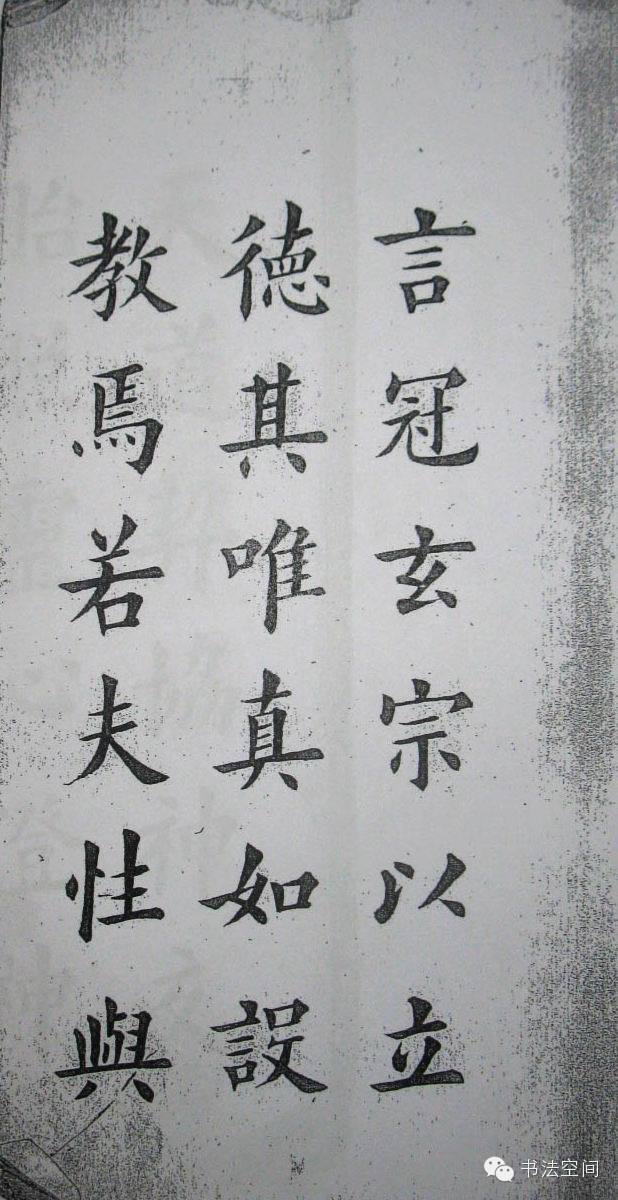 言冠玄宗以立
德其唯真如設
教焉若夫性與
书法空间